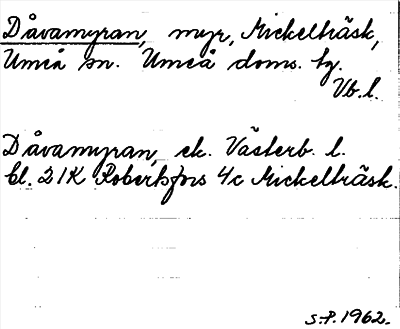 Dåvamyran, myr, Mickelträsk,
Umeå sn. Umeå doms. tg.
Vb. l.
Dåvamyran, ek. Västerb. l.
bl. 21K Robertsfors 4c Mickelträsk.
S.P. 1962.